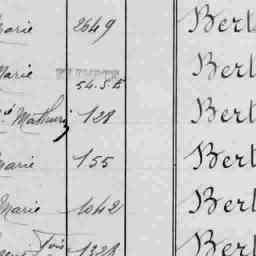 Marie 2649 Bert
Marie 54.5.B Bert
Mathurin 128 Bert
Marie 155 Bert
Marie 1042 Bert
Fois 1328 Bert